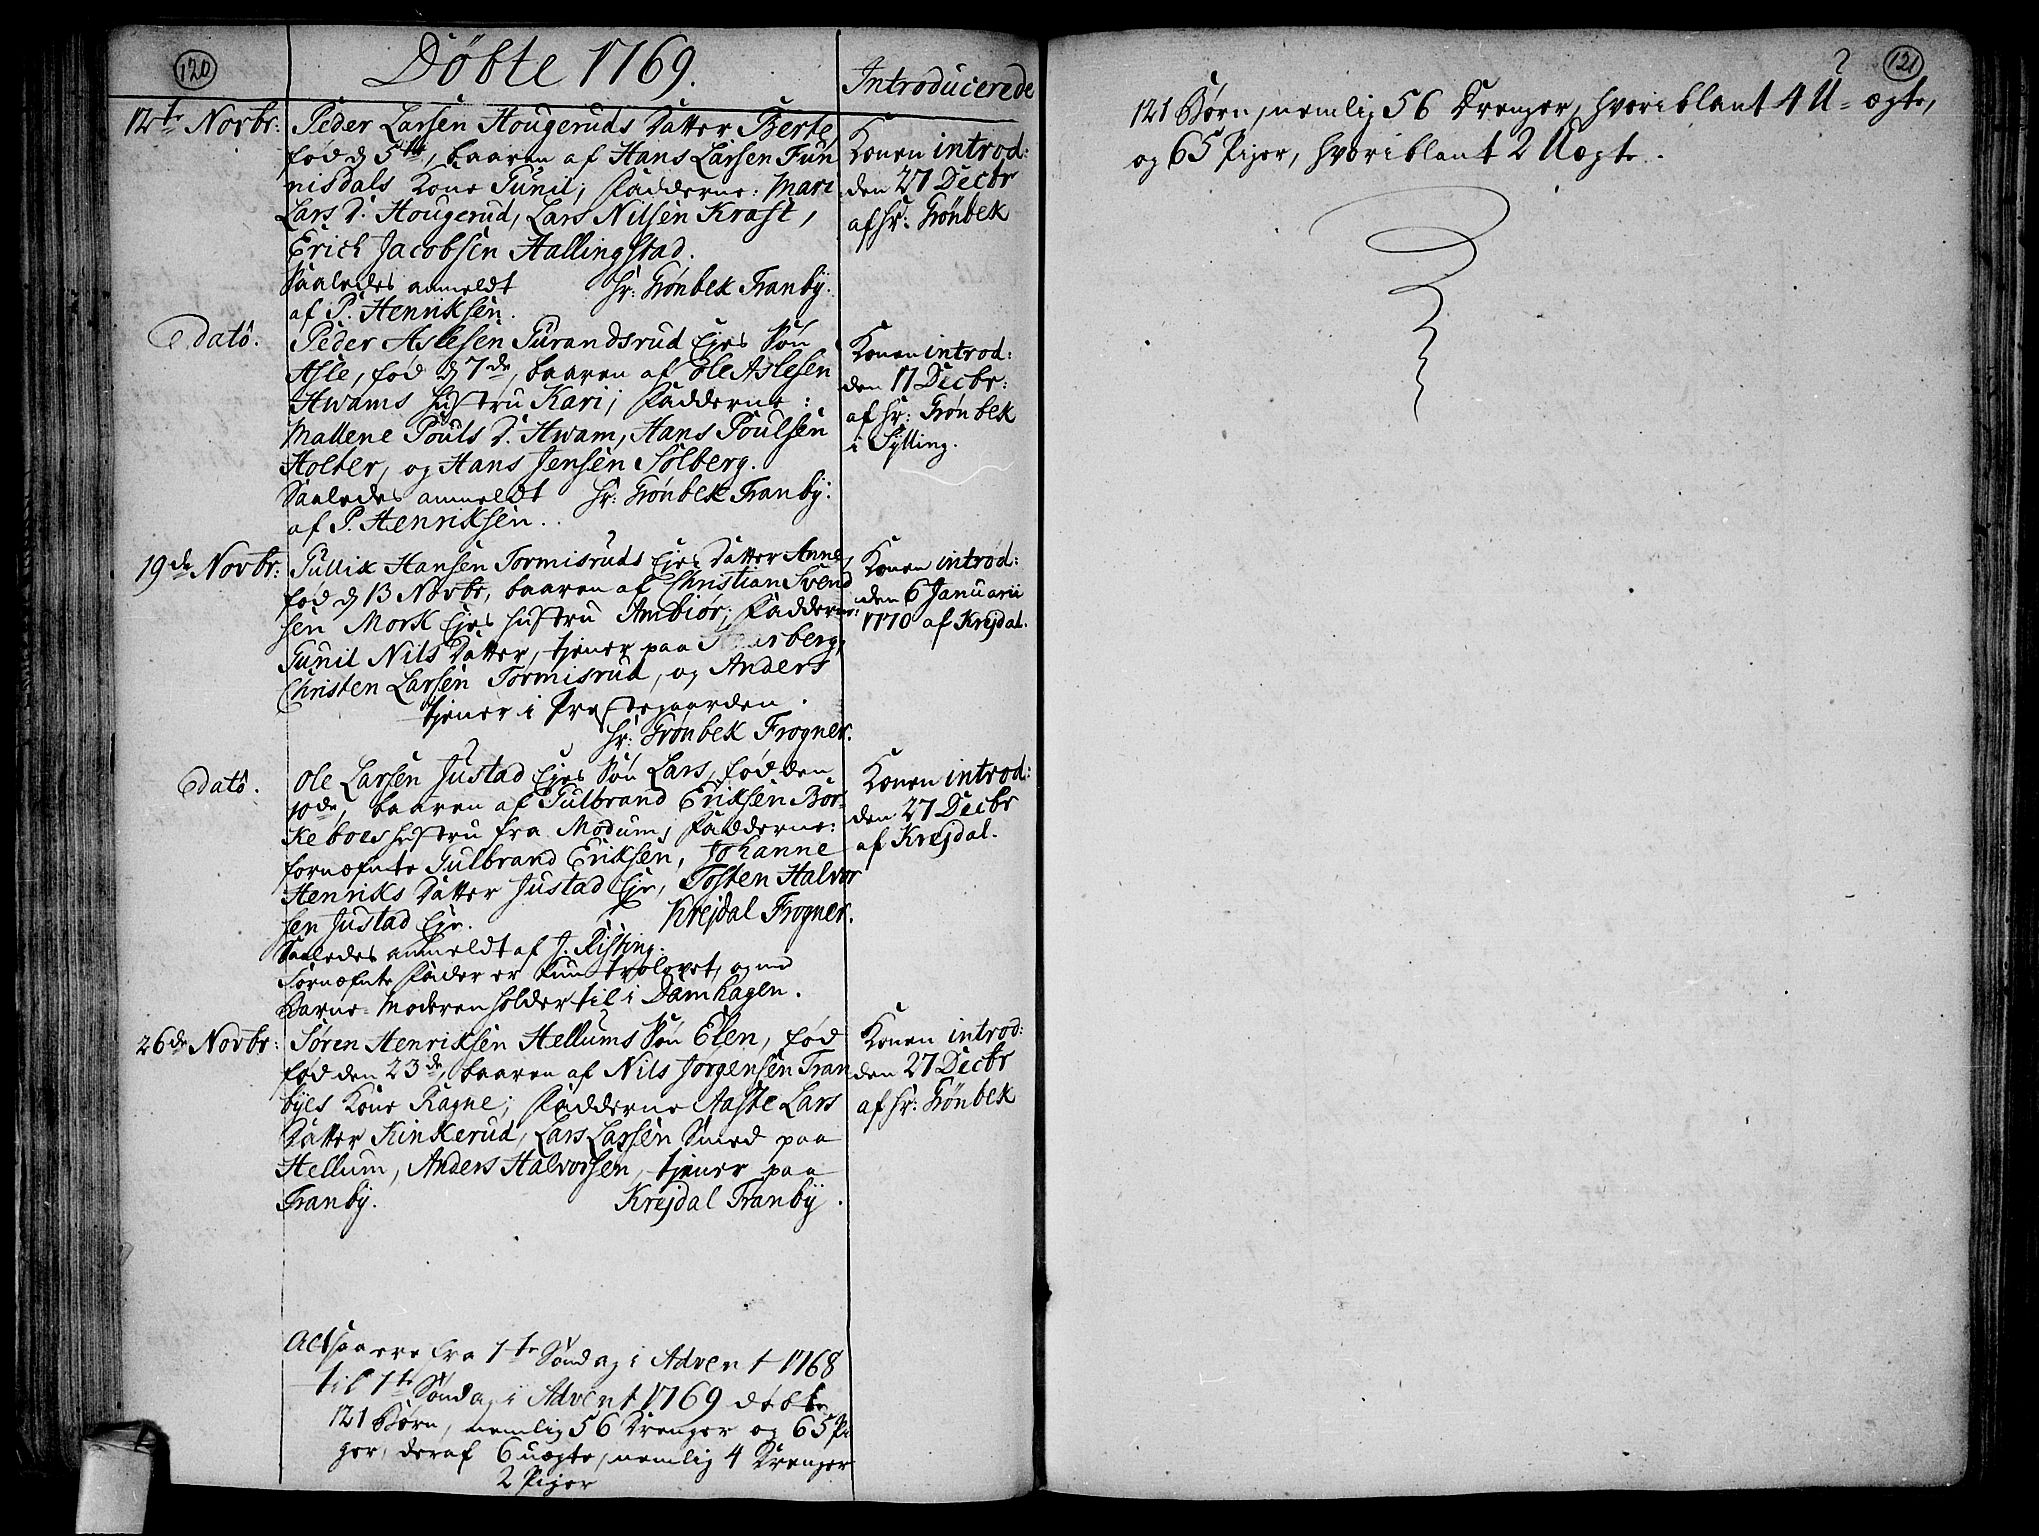 120
Döbte 1769.
Introducerede
12te Novbr:
Peder Larsen Hougeruds Datter Berte,
fød d 5te, baaren af Hans Larsen Fun
nisdals Kone Gunil; Fadderne: Mari
Lars D. Hougerud, Lars Nilsen Kraft,
Erich Jacobsen Hallingstad.
Saaledes anmeldt Hr: Grönbek Tranby.
af P. Henriksen.
Konen introd:
den 27 Decbr
af Hr: Grönbek
Edatô.
Peder Aslesen Gurandsrud Ejes Søn
Asle, fød d 7de, baaren af Ole Aslesen
Hwams Hustru Kari; Fadderne:
Mallene Pouls D. Hwam, Hans Poulsen
Holter, og Hans Jensen Solberg.
Saaledes anmeldt Hr: Grönbek Tranby.
af P. Henriksen.
Konen introd:
den 17 Decbr:
af Hr: Grönbek
i Sylling.
19de Novbr:
Gullik Hansen Tormisruds Ejes Datter Anne,
fød d 13 Novbr, baaren af Christian Svend
sen Mork Ejes Hustru Ambior; Fadderne:
Gunil Nils Datter, tjener paa
Christen Larsen Tormisrud, og Anders
tjener i Præstegaarden.
Hr: Grönbek Frogner.
Konen introd:
den 6 Januarii
1770 af Krejdal.
Edatô.
Ole Larsen Justad Ejes Søn Lars, fød den
10de, baaren af Gulbrand Eriksen Bor-
keboes Hustru fra Modum; Fadderne:
fornæfnte Gulbrand Eriksen, Johanne
Henriks Datter Justad Eje, Tosten Halvor
sen Justad Eje. Krejdal Frogner.
Saaledes anmeldt af J. Risting.
Fornæfnte Fader er kun trolovet, og
Barne-Moderen holder til i Damhagen.
Konen introd:
den 27 Decbr
af Krejdal.
26de Novbr:
Søren Henriksen Hellums Søn Elen, fød
fød den 23de, baaren af Nils Jørgensen Tran
byes Kone Ragne; Fadderne Aaste Lars
Datter Kinkerud, Lars Larsen Smed paa
Hellum, Anders Halvorsen, tjener paa
Tranby. Krejdal Tranby.
Konen introd:
den 27 Decbr
af Hr: Grönbek
Altsaa ere fra 1te Søndag i Advent 1768
til 1te Søndag i Advent 1769 døbte
121 Børn, nemlig 56 Drenger og 65 Pi
ger, deraf 6 uægte, nemlig 4 Drenger
2 Piger
121
121 Børn, nemlig 56 Drenger, hvoriblant 4 U-ægte,
og 65 Piger, hvoriblant 2 Uægte.